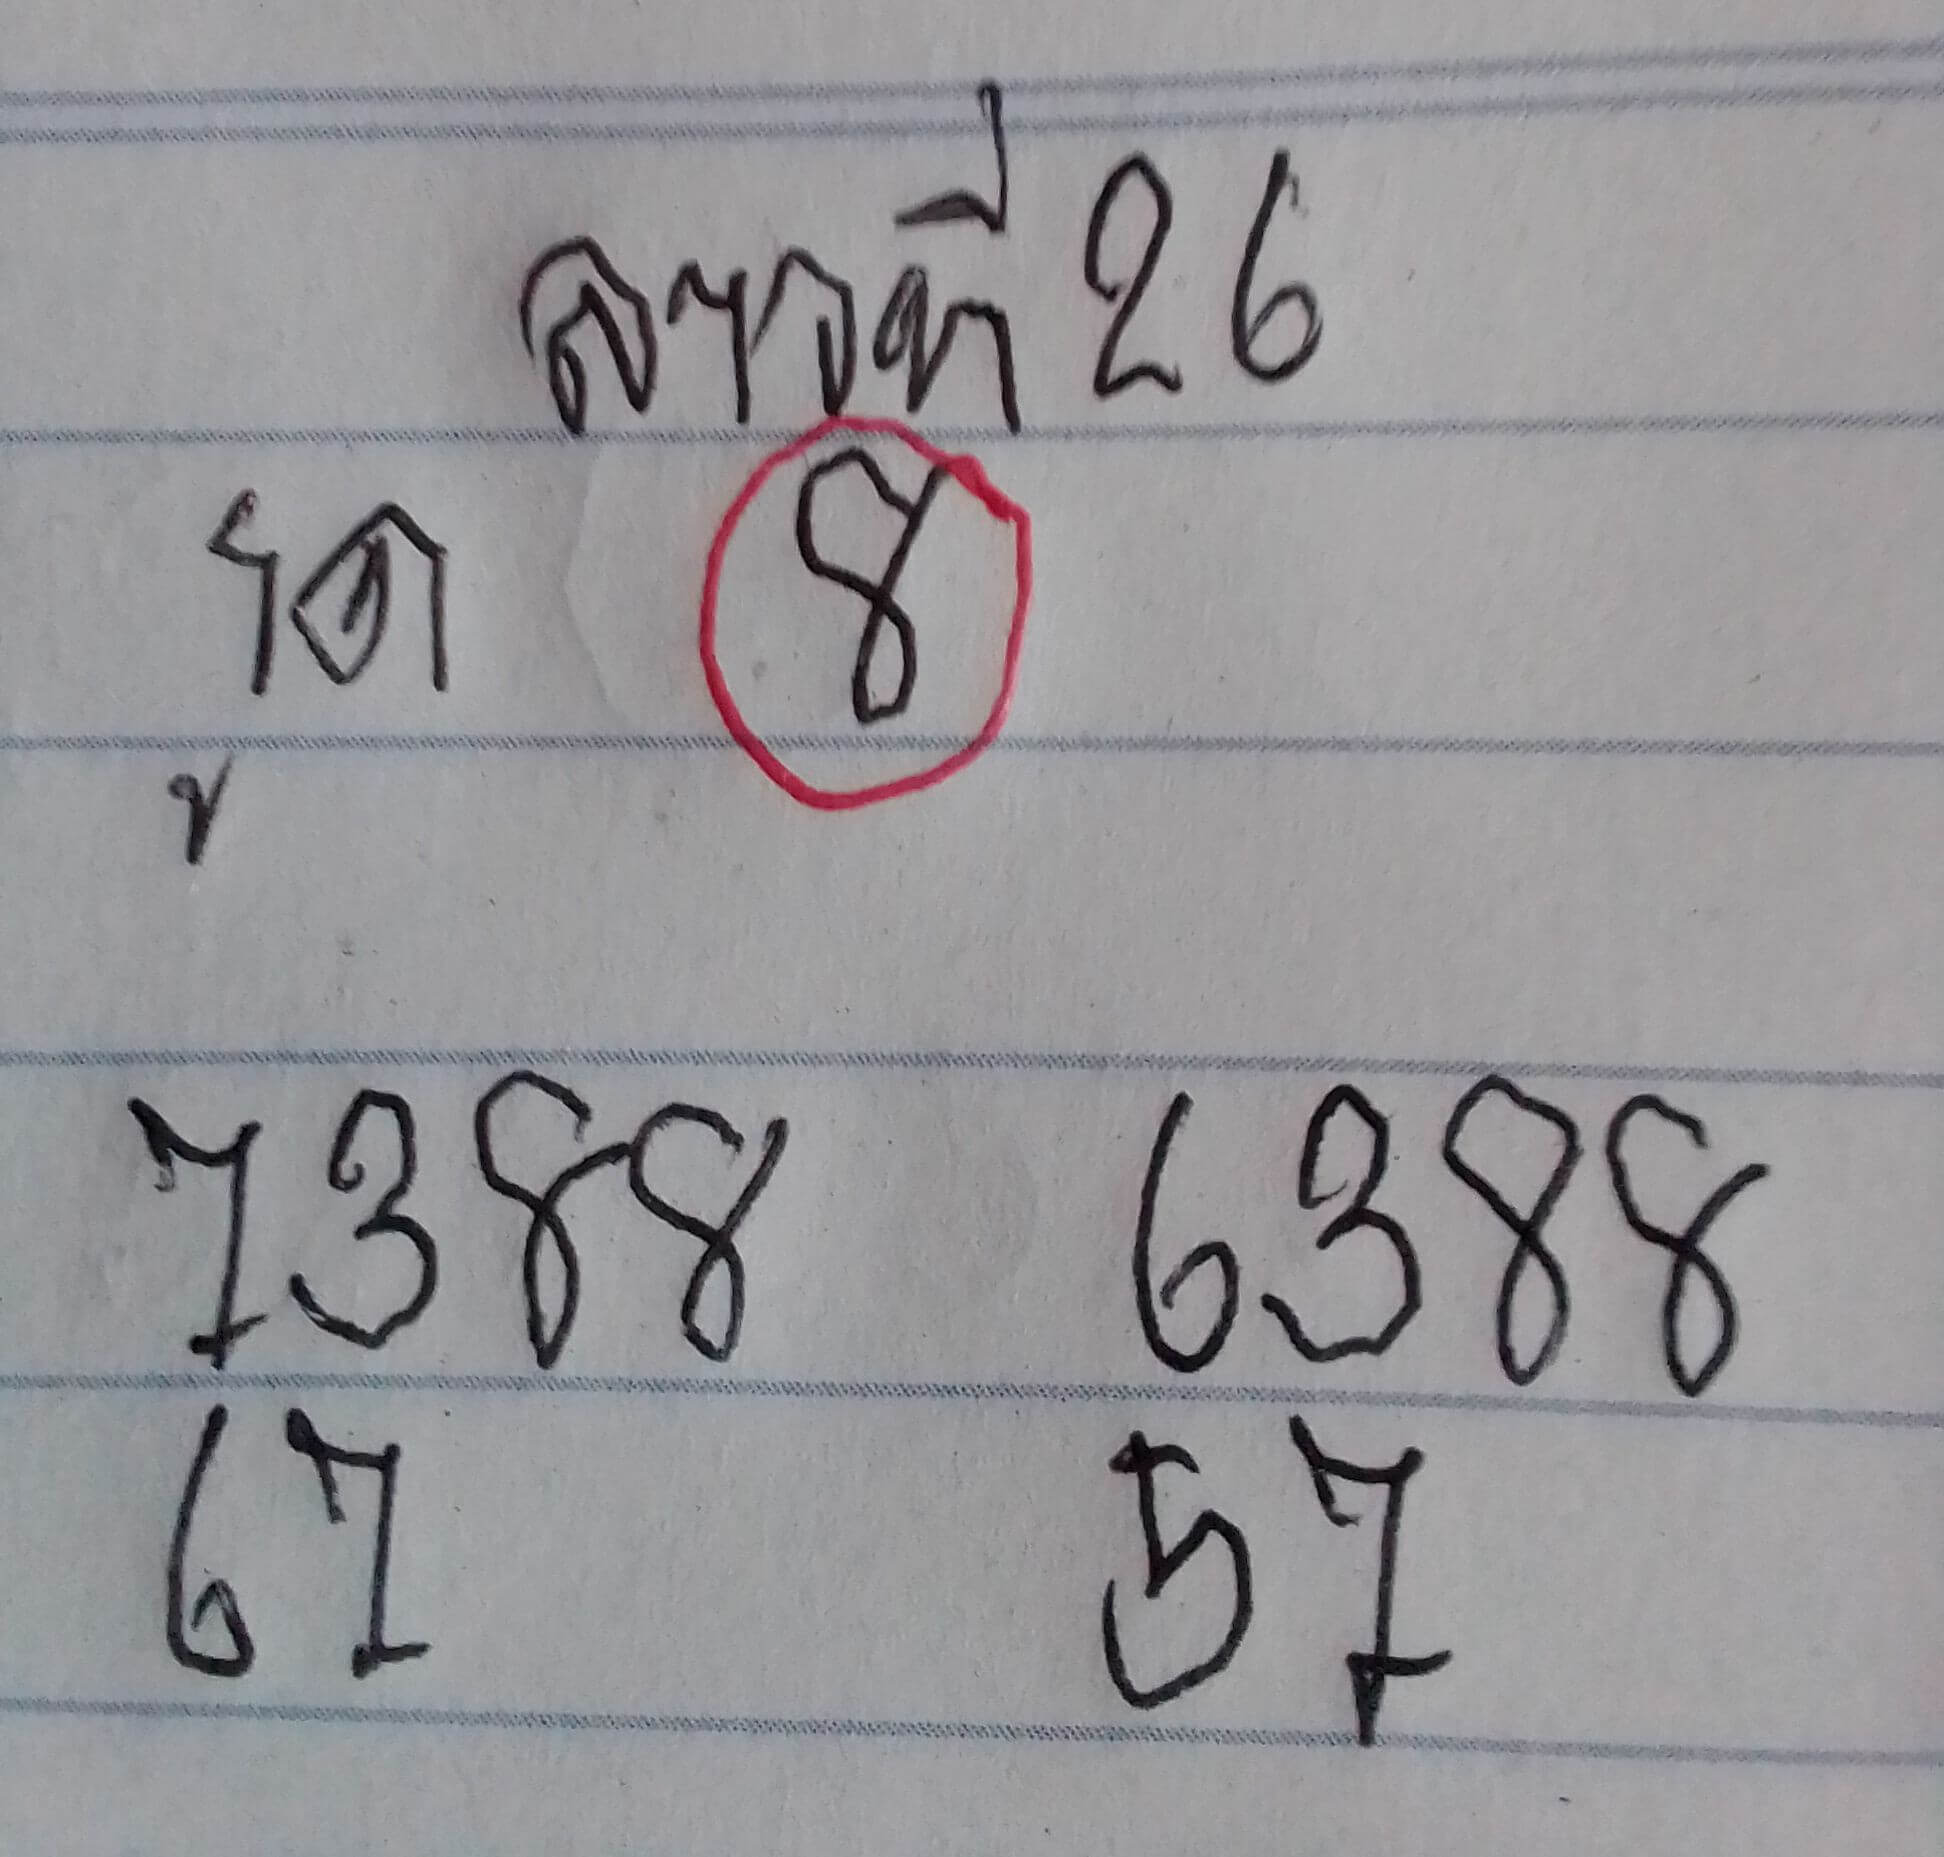 ลาวที่ 26
รูด 8
7388 6388
67 57